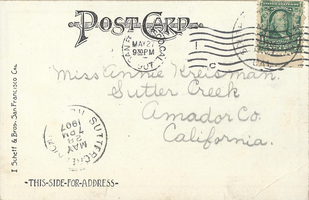 POST CARD
MAY 27
9 30 PM
Miss Annie Kreisman
Sutter Creek
Amador Co.
California.
SUTTER CREEK
MAY
28
7 PM
1907
I Scheff & Bros. San Francisco Cal
-THIS-SIDE-FOR-ADDRESS-